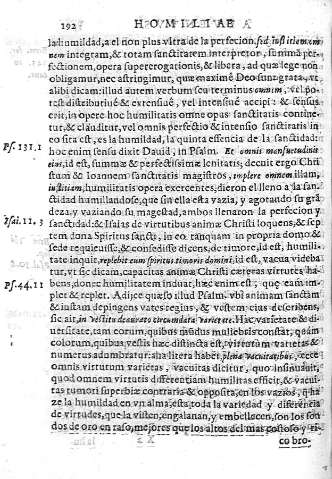 192 HOMILIAE
la humildad, a el non plus vltra de la perfecion. sed iustitiam om
nem integram, & totam sanctitatem interpretor, summã perfe-
ctionem, opera supererogationis, & libera, ad quæ lege non
obligamur, nec astringimur, quæ maximè Deo sunt grata, vt
alibi dicam: illud autem verbum seu terminus omnem, vel po-
test distributiuè & extensiuè, vel intensiuè accipi: & sensus
erit, in opere hoc humilitatis omne opus sanctitatis contine-
tur, & clauditur, vel omnis perfectio & intensio sanctitatis in
eo sita est, es la humildad, la quinta essencia de la sanctidad:
hoc enim sensu dixit Dauid, in Psalm. Et omnis mansuetudinis
Ps. 131.1
eius, id est, summæ & perfectissimæ lenitatis; decuit ergo Chri
stum & Ioannem sanctitatis magistros, implere omnem illam,
iustitiam, humilitatis opera exercentes, dieron el lleno a la san
ctidad humillandose, que sin ella esta vazia, y agotando su gran
deza, y vaziando su magestad, ambos llenaron la perfecion y
sanctidad: & Isaias de virtutibus animæ Christi loquens, & sep
Isai. 11. 3
tem dona Spiritus sancti, in eo tanquam in propria domo &
sede requieuisse, & consedisse dicens, de timore, id est, humili-
tate inquit, replebit eum spiritus timoris domini, id est, vacua videba
tur, vt sic dicam, capacitas animæ Christi cæteras virtutes ha-
Ps. 44. 11
bens, donec humilitatem induat, hæc enim est, quæ eam im-
plet & replet. Adijce quæso illud Psalm. vbi animam sanctam
& iustam depingens vates regius, & vestem eius describens,
sic ait, in vestitu deaurato circundata varietate. Hæc varietate & di-
uersitate, tam eorum, quibus mūdus muliebris constat, quàm
colorum, quibus vestis hæc distincta est, virtutum varietas &
numerus adumbratur: alia litera habet, plena vacuitatibus, ecce
omnis virtutum varietas, vacuitas dicitur, quo insinuauit,
quod omnem virtutis differentiam humilitas efficit, & vacui-
tas tumori superbiæ contraria & opposita, en los vazios, q̃ ha-
ze la humildad en vn alma, esta toda la variedad y diferencia
de virtudes, que la visten, engalanan, y embellecen, son los fon
dos de oro en raso, mejores que los altos del mas costoso y ri-
co bro-